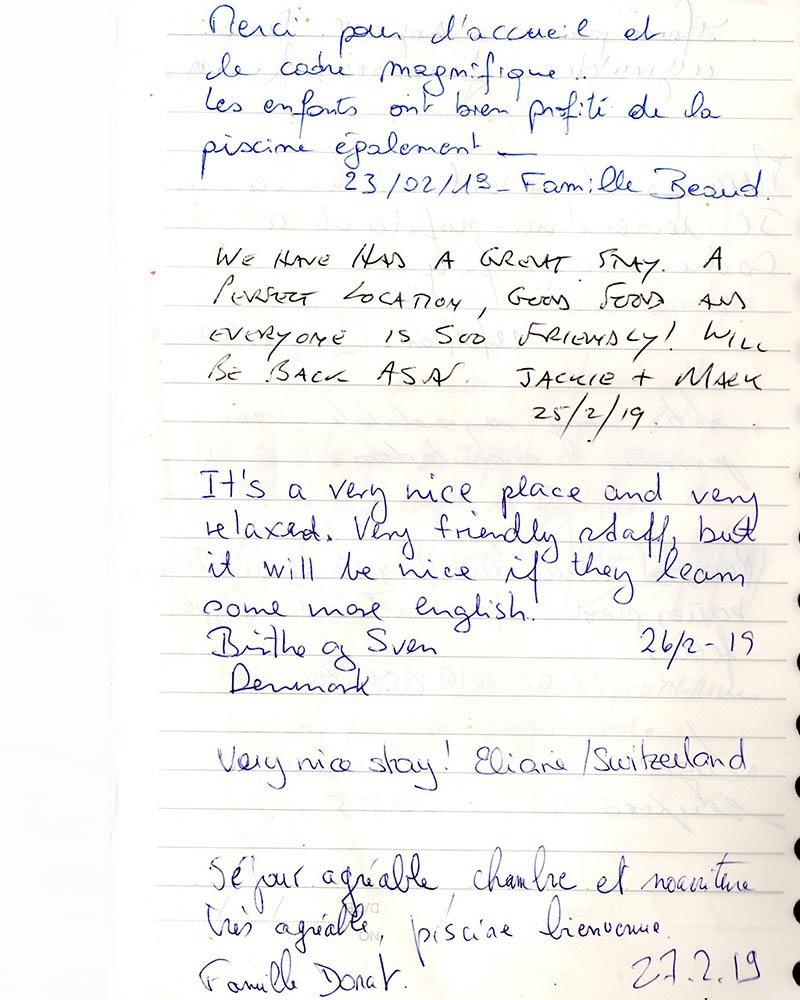 Merci pour l'accueil et
le cadre magnifique..
Les enfants ont bien profité de la
piscine également —
23/02/19 - Famille Beaud.
WE HAVE HAD A GREAT STAY. A
PERFECT LOCATION, GOOD FOOD AND
EVERYONE IS SOO FRIENDLY! WILL
BE BACK ASAP. JACKIE + MARK
25/2/19.
It's a very nice place and very
relaxed. Very friendly staff, but
it will be nice if they learn
some more english.
Birthe og Sven 26/2-19
Denmark
Very nice stay! Eliane/Switzerland
Séjour agréable, chambre et nourriture
très agréable, piscine bienvenue.
Famille Donat. 27.2.19